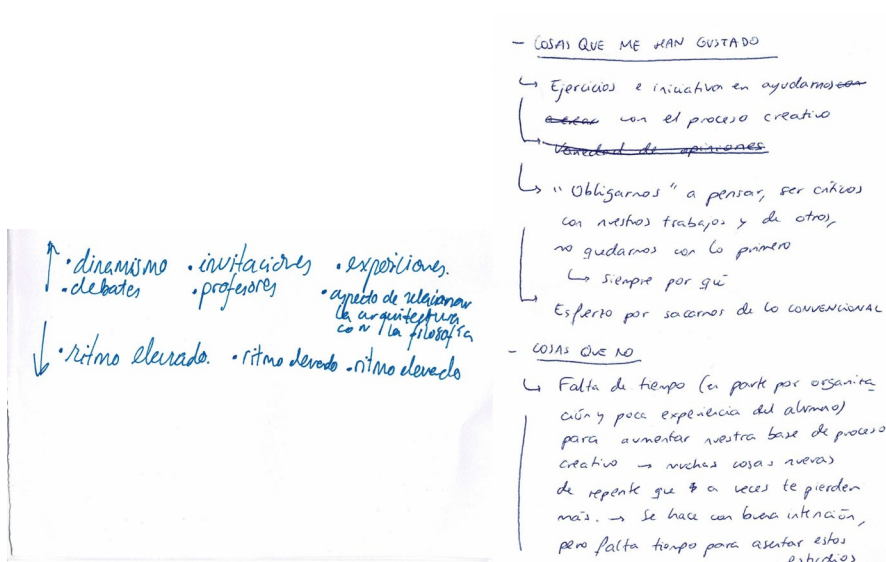 · dinamismo · invitaciones · exposiciones.
· debates · profesores · aspecto de relacionar
la arquitectura
con la filosofía
· ritmo elevado. · ritmo elevado · ritmo elevado
- COSAS QUE ME HAN GUSTADO
↳ Ejercicios e iniciativa en ayudarnos
con el proceso creativo
Variedad de opiniones
↳ "Obligarnos" a pensar, ser críticos
con nuestros trabajos y de otros,
no quedarnos con lo primero
↳ siempre por qué
Esfuerzo por sacarnos de lo CONVENCIONAL
- COSAS QUE NO
↳ Falta de tiempo (en parte por organiza-
ción y poca experiencia del alumno)
para aumentar nuestra base de proceso
creativo → muchas cosas nuevas
de repente que a veces te pierden
más. → Se hace con buena intención,
pero falta tiempo para asentar estos
estudios